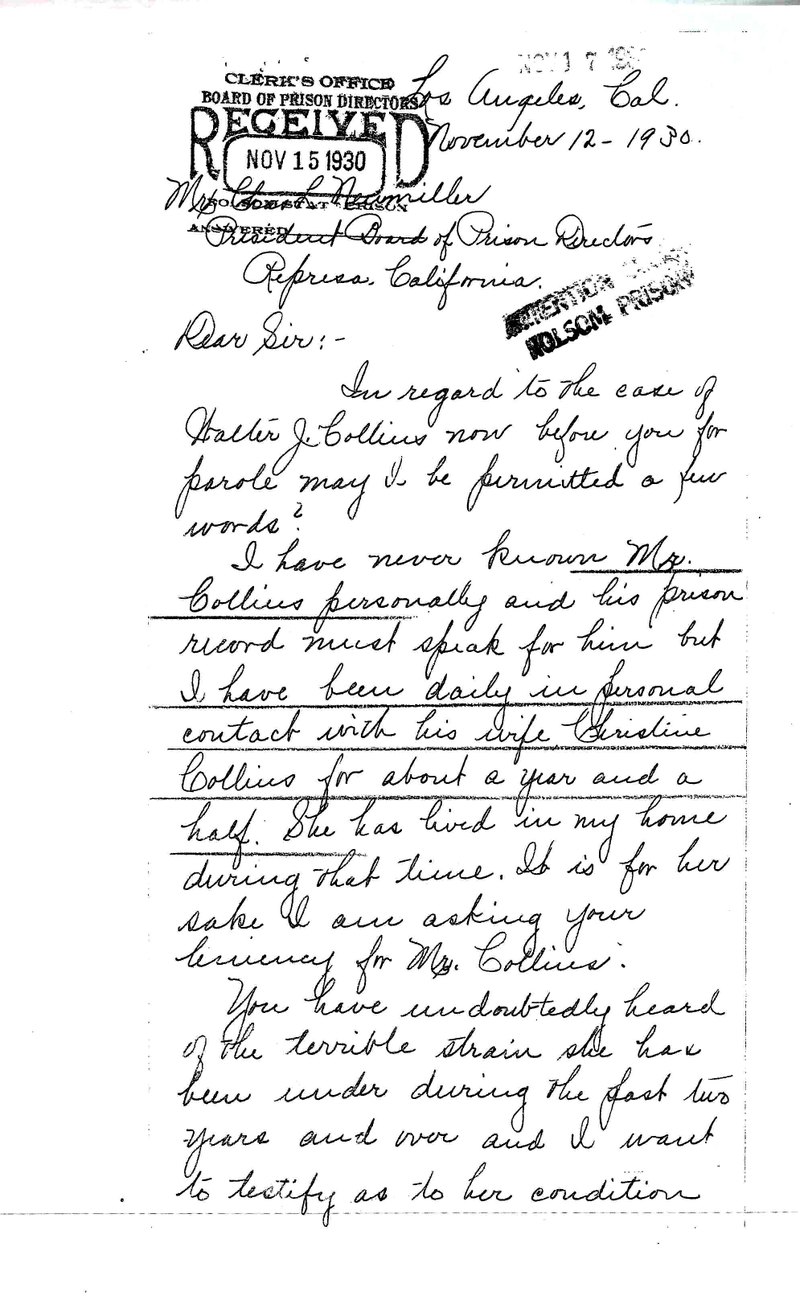 NOV 17 193
CLERK'S OFFICE
BOARD OF PRISON DIRECTORS
RECEIVED
NOV 15 1930
FOLSOM STATE PRISON
ANSWERED
Los Angeles, Cal.
November 12 - 1930.
Mr. Chas. L. Neumiller
President Board of Prison Directors
Represa, California.
ATTENTION
FOLSOM PRISON
Dear Sir:-
In regard to the case of
Walter J. Collins now before you for
parole may I be permitted a few
words?
I have never known Mr.
Collins personally and his prison
record must speak for him but
I have been daily in personal
contact with his wife Christine
Collins for about a year and a
half. She has lived in my home
during that time. It is for her
sake I am asking your
leniency for Mr. Collins.
You have undoubtedly heard
of the terrible strain she has
been under during the past two
years and over and I want
to testify as to her condition